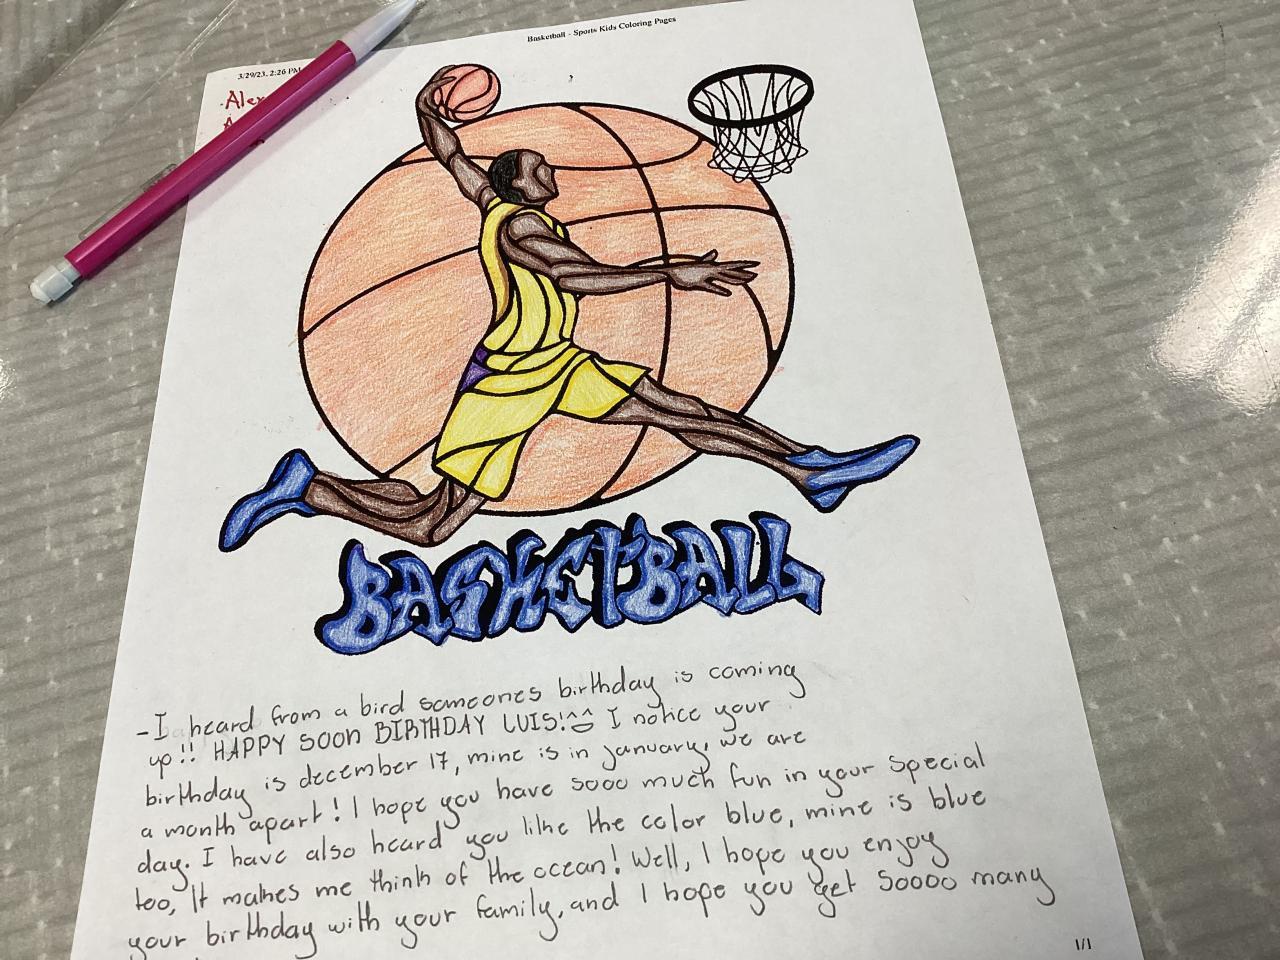 Basketball - Sports Kids Coloring Pages
3/29/23, 2:26 PM
BASKETBALL
- I heard from a bird someones birthday is coming
up!! HAPPY SOON BIRTHDAY LUIS!^^ I notice your
birthday is december 17, mine is in january, we are
a month apart! I hope you have sooo much fun in your special
day. I have also heard you like the color blue, mine is blue
too, It makes me think of the ocean! Well, I hope you enjoy
your birthday with your family, and I hope you get soooo many
1/1